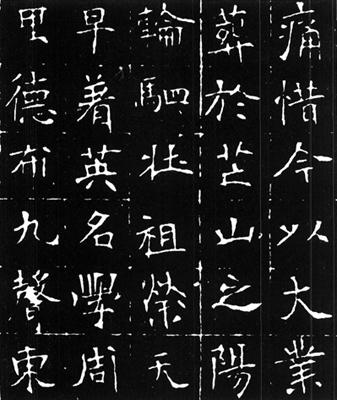 痛惜今以大業
葬於芒山之陽
輪駟壮祖榮天
早着英名學周
里德布九聲東